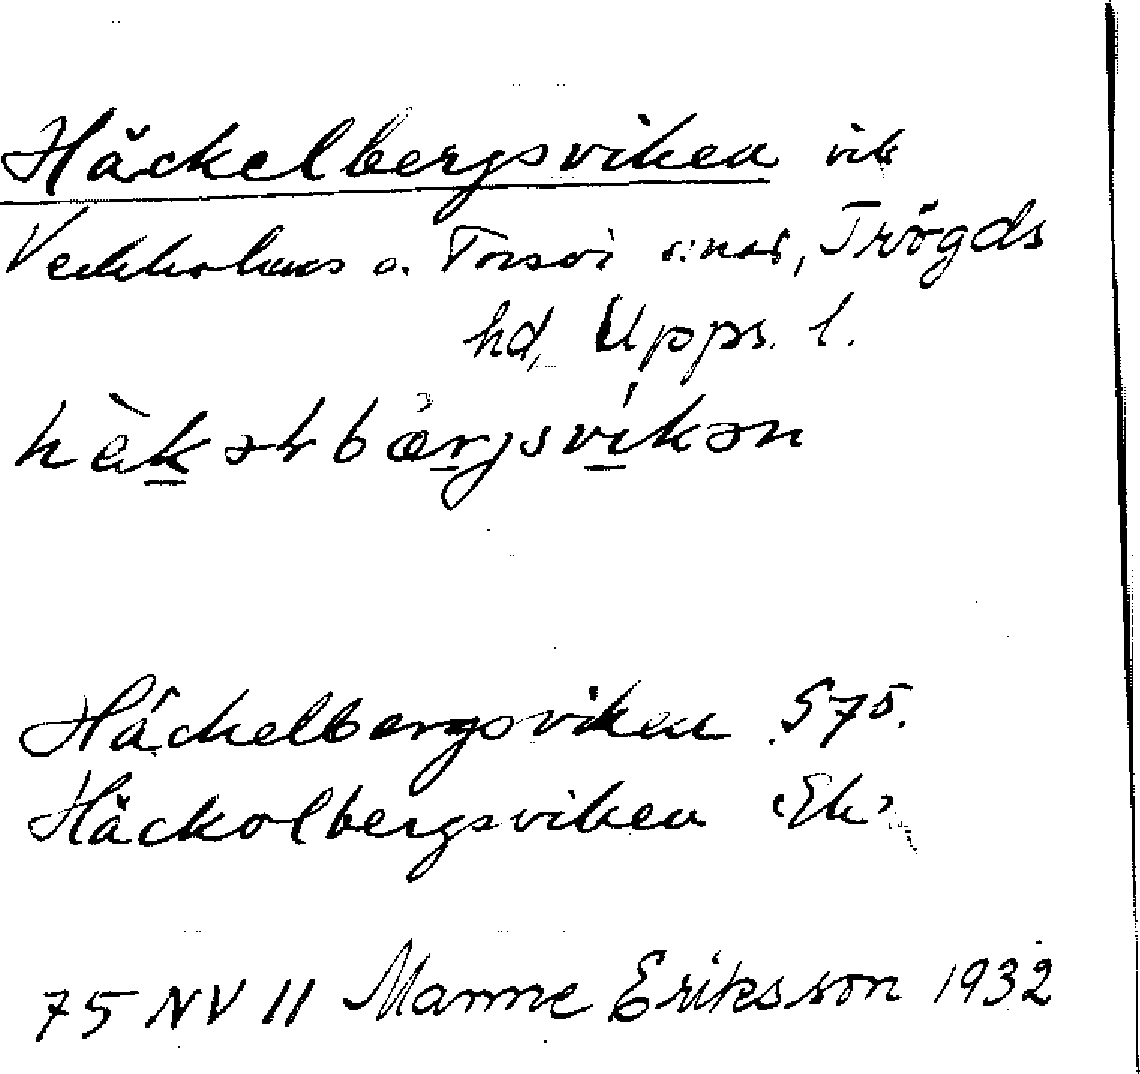 Häckelbergsviken vik
Veckholms o. Torsvi s:nar, Trögds
hd, Upps. l.
hàkəlbærjsvikən
Häckelbergsviken S75.
Häckolbergsviken Ek
75 NV II Manne Eriksson 1932